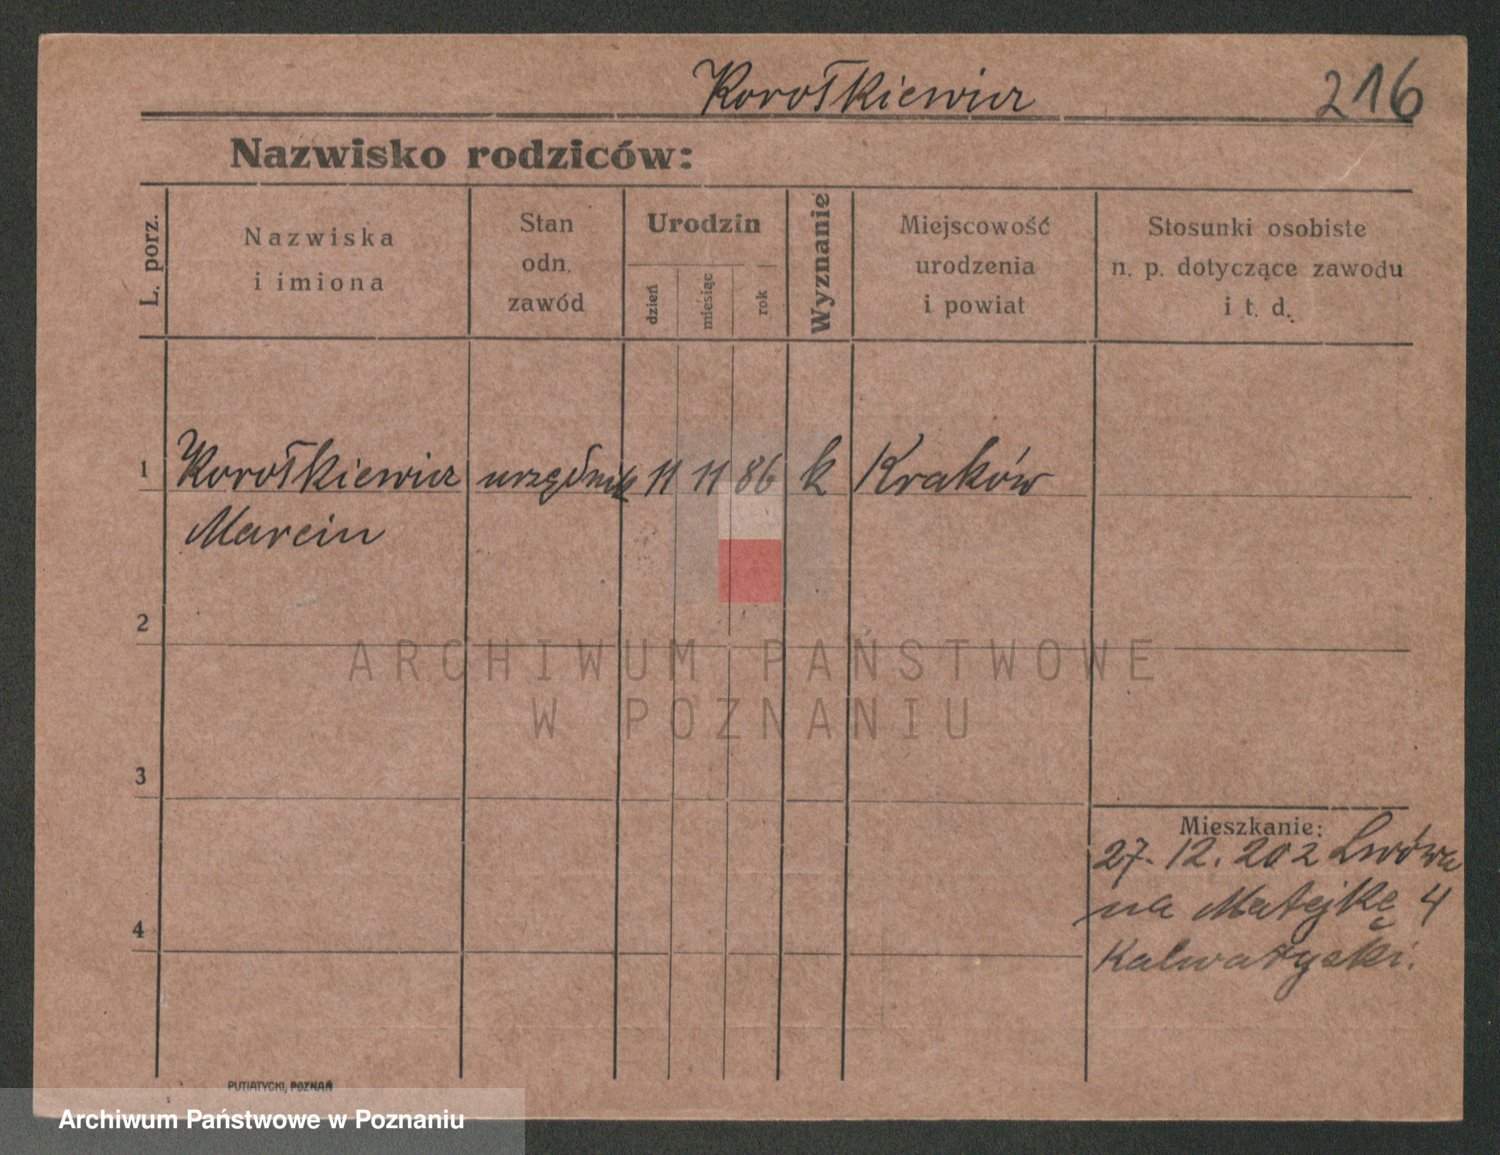 Korołkiewicz 216
Nazwisko rodziców:
L. porz.
Nazwiska
i imiona
Stan
odn.
zawód
Urodzin
dzień
miesiąc
rok
Wyznanie
Miejscowość
urodzenia
i powiat
Stosunki osobiste
n. p. dotyczące zawodu
i t. d.
1 Korołkiewicz urzędnik 11 11 86 k Kraków
Marcin
2
ARCHIWUM PAŃSTWOWE
W POZNANIU
3
Mieszkanie:
27. 12. 20 z Lwowa
na Matejkę 4
4
Kalwaryjski.
PUTIATYCKI, POZNAŃ
Archiwum Państwowe w Poznaniu